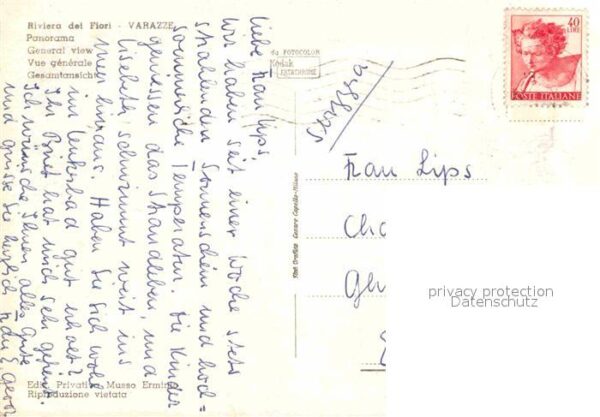 Riviera dei Fiori - VARAZZE
Panorama
General view
Vue générale
Gesamtansicht
da FOTOCOLOR
Kodak
EKTACHROME
40
LIRE
POSTE ITALIANE
Svizzera
Liebe Frau Lips,
Wir haben seit einer Woche stets
strahlenden Sonnenschein und hoch=
sommerliche Temperatur. Die Kinder
geniessen das Strandleben, und
Lisebeth schwimmt weit ins
Meer hinaus. Haben Sie sich wohl
im Leukerbad gut erholt?
Ihr Brief hat mich sehr gefreut.
Ich wünsche Ihnen alles Gute
und grüsse Sie herzlich
Frau Lips
privacy protection
Datenschutz
Ediz. Privativa Musso Erminio
Riproduzione vietata